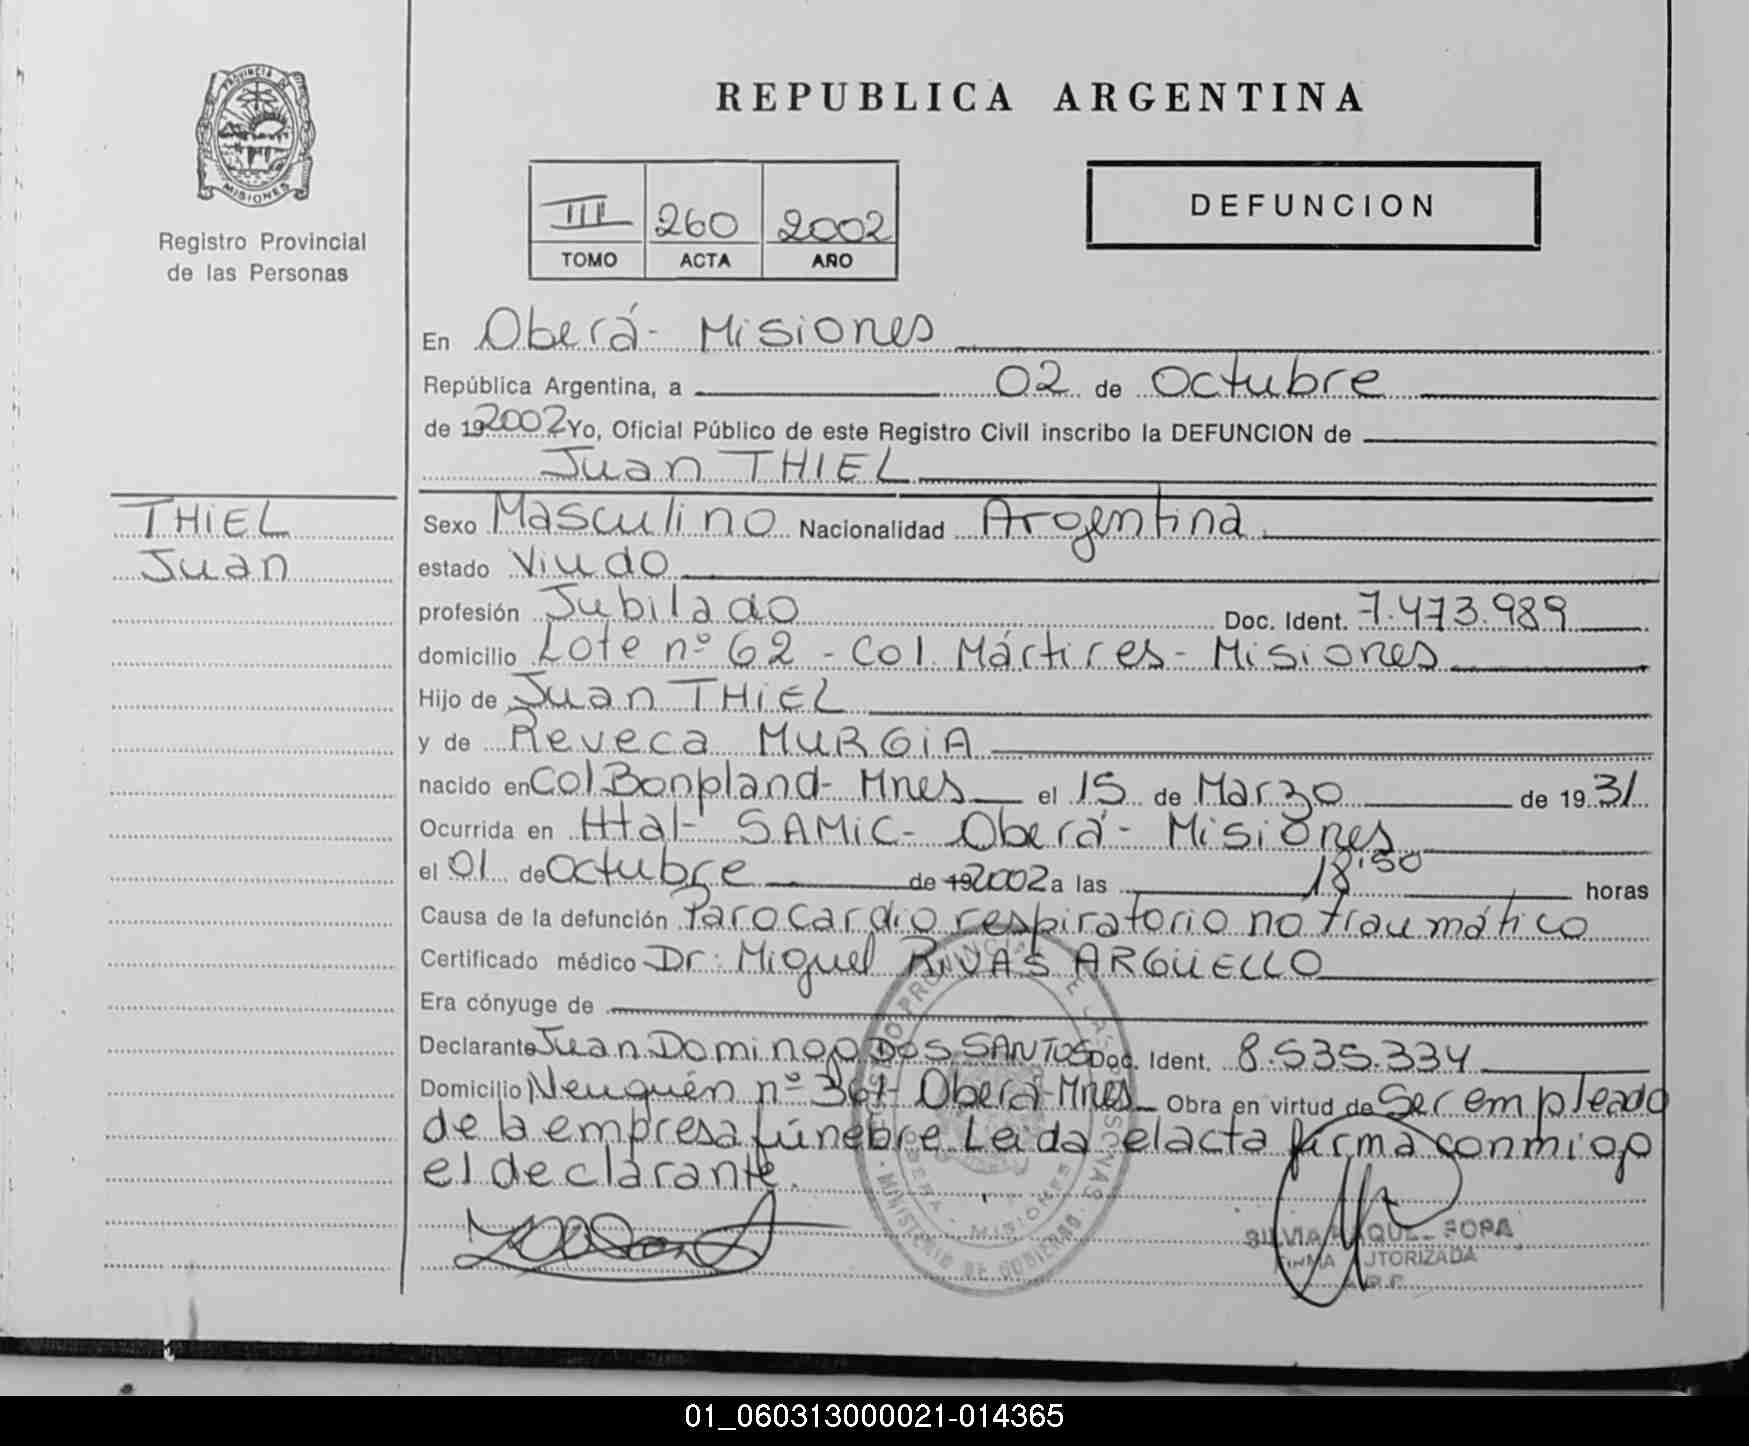 PROVINCIA DE
MISIONES
Registro Provincial
de las Personas
REPUBLICA ARGENTINA
III 260 2002
TOMO ACTA AÑO
DEFUNCION
En Oberá- Misiones
República Argentina, a 02 de Octubre
de 192002 Yo, Oficial Público de este Registro Civil inscribo la DEFUNCION de
Juan THIEL
THIEL
Juan
Sexo Masculino Nacionalidad Argentina
estado Viudo
profesión Jubilado Doc. Ident. 7.473.989
domicilio Lote nº 62 - Col. Mártires - Misiones
Hijo de Juan THIEL
y de Reveca MURGIA
nacido en Col. Bonpland- Mnes el 15 de Marzo de 1931
Ocurrida en Htal- SAMIC- Oberá- Misiones
el 01 de Octubre de 192002 a las 18:50 horas
Causa de la defunción Paro cardio respiratorio no traumático
Certificado médico Dr: Miguel RIVAS ARGÜELLO
Era cónyuge de
Declarante Juan Domingo DOS SANTOS Doc. Ident. 8.535.334
Domicilio Neuquén nº 361- Oberá-Mnes Obra en virtud de Ser empleado
de la empresa fúnebre. Leida el acta firma conmigo
el declarante.
MINISTERIO DE GOBIERNO
MISIONES
SILVIA RAQUEL SOPA
FIRMA AUTORIZADA
01_060313000021-014365